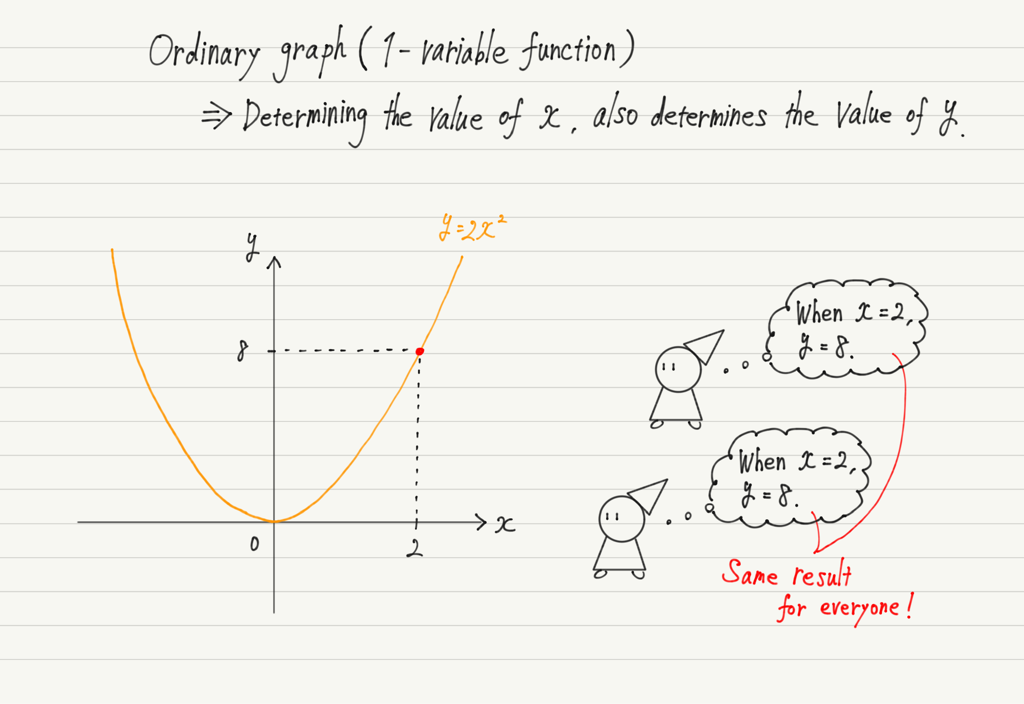 Ordinary graph (1-variable function)
⇒ Determining the value of x, also determines the value of y.
y=2x²
y
8
0
2
x
When x=2,
y=8.
When x=2,
y=8.
Same result
for everyone!